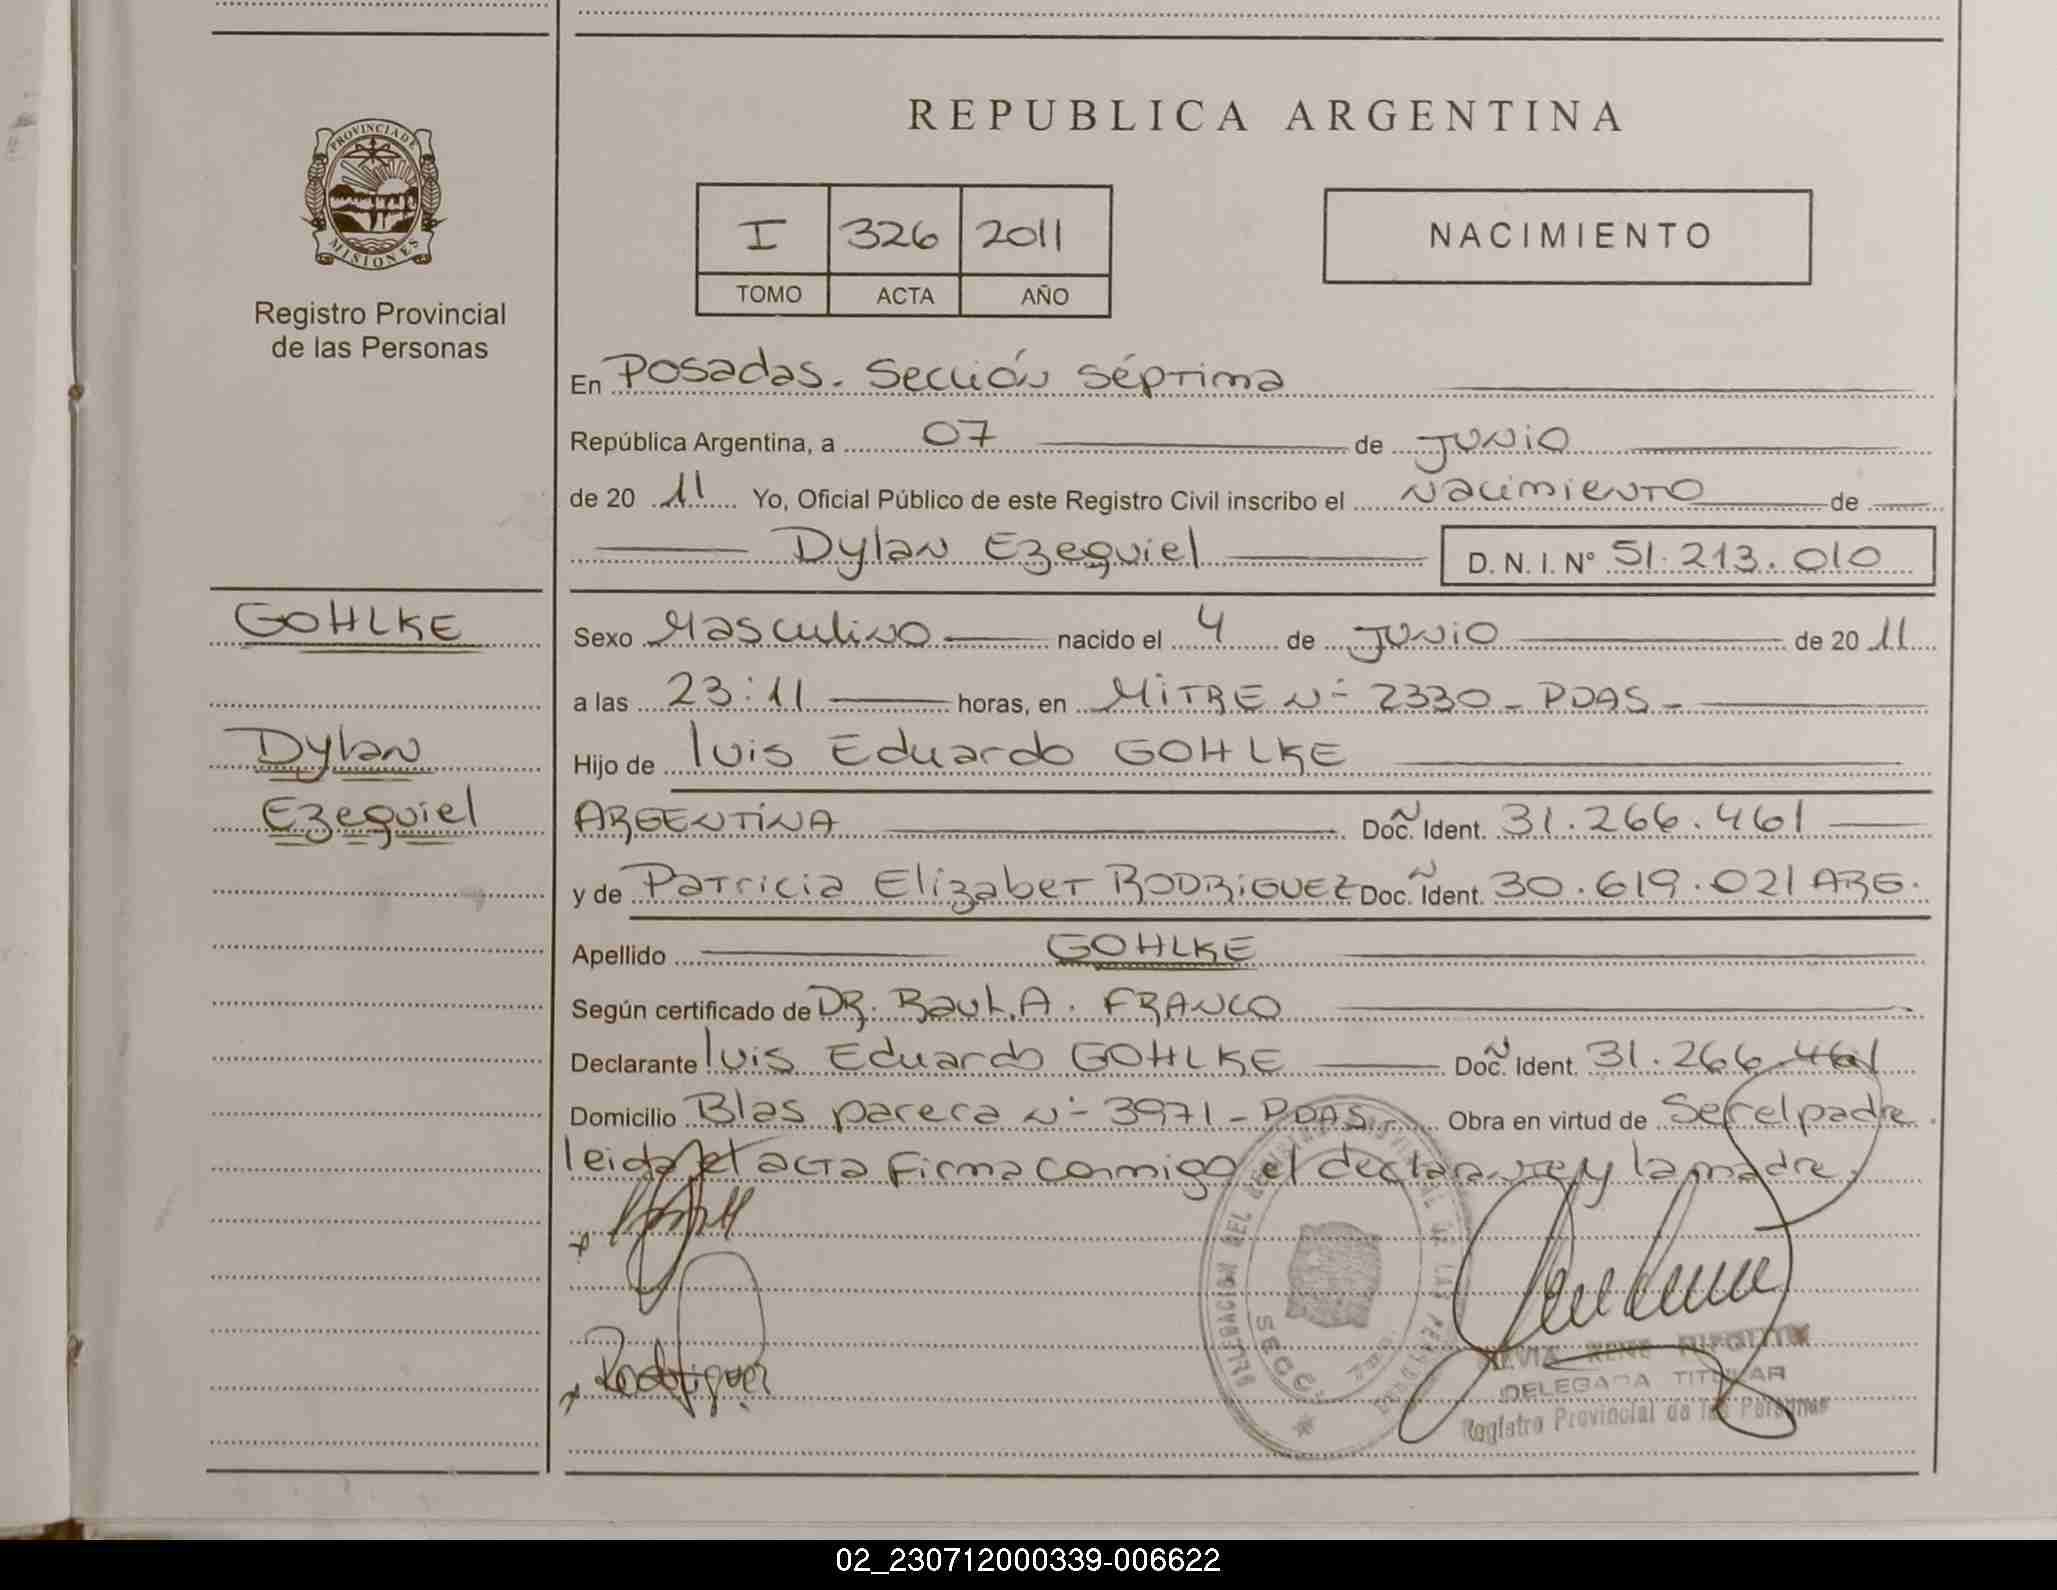 REPUBLICA ARGENTINA
PROVINCIA DE
MISIONES
Registro Provincial
de las Personas
I 326 2011
TOMO ACTA AÑO
NACIMIENTO
En Posadas. Sección séptima
República Argentina, a 07 de JUNIO
de 20 11 Yo, Oficial Público de este Registro Civil inscribo el Nacimiento de
Dylan Ezequiel D. N. I. Nº 51.213.010
GOHLKE
Dylan
Ezequiel
Sexo Masculino nacido el 4 de JUNIO de 20 11
a las 23:11 horas, en MITRE Nº 2330 - PDAS -
Hijo de luis Eduardo GOHLKE
ARGENTINA Doc. Ident. 31.266.461
y de Patricia Elizabet RODRIGUEZ Doc. Ident. 30.619.021 ARG.
Apellido GOHLKE
Según certificado de DR. Raul. A. FRANCO
Declarante luis Eduardo GOHLKE Doc. Ident. 31.266.461
Domicilio Blas parera Nº 3971 - PDAS. Obra en virtud de Ser el padre.
leida el acta Firma conmigo el declarante y la madre.
Rodriguez
SECC.
RENE
DELEGADA TITULAR
Registro Provincial de las Personas
02_230712000339-006622